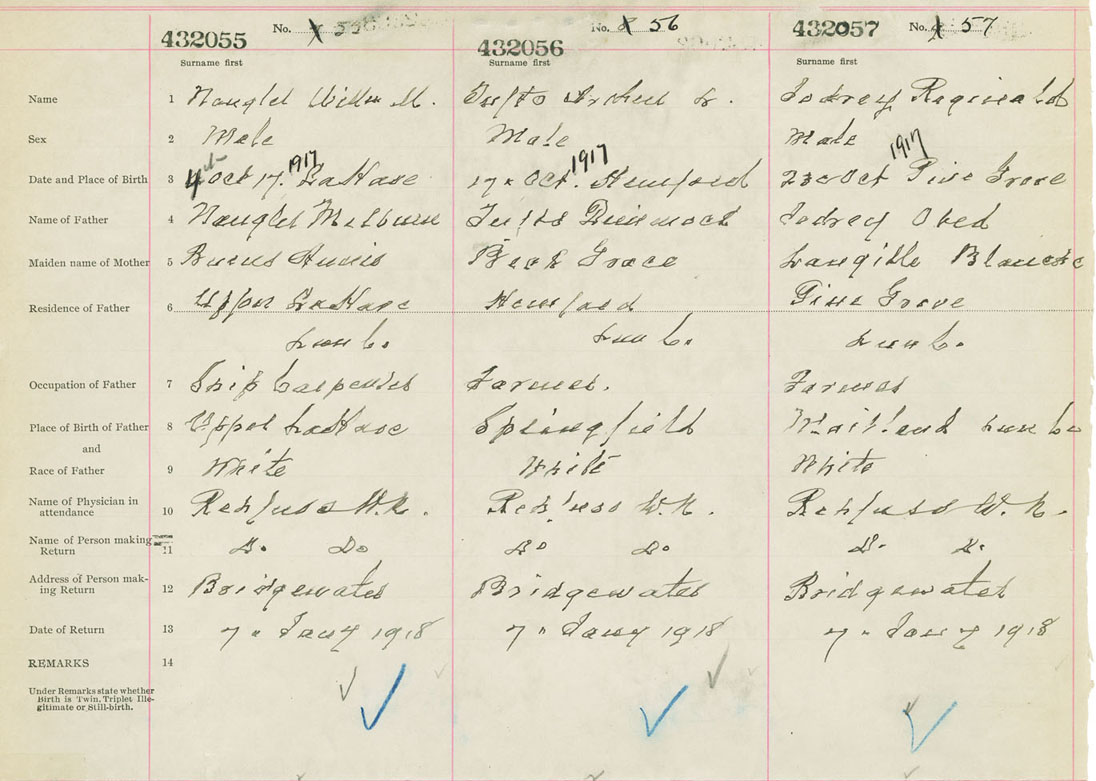 432055 No. 55
432056 No. 56
432057 No. 57
Surname first Surname first Surname first
Name 1 Naugler M. Jr. Reginald
Sex 2 Male Male Male
Date and Place of Birth 3 4th Oct 17. 1917 LaHave 17 " Oct. 1917 Hemford 23 " Oct 1917 Pine Grove
Name of Father 4 Naugler Melbourne Obed
Maiden name of Mother 5 Annie Grace Langille Blanche
Residence of Father 6 Upper LaHave Hemford Pine Grove
Lun Co. Lun Co. Lun Co.
Occupation of Father 7 Ship Carpenter Farmer. Farmer
Place of Birth of Father 8 Upper LaHave Springfield Maitland Lun Co
and
Race of Father 9 White White White
Name of Physician in
attendance 10 Rehfuss W.N. Rehfuss W.N. Rehfuss W.N.
Name of Person making
Return 11 Do Do Do Do Do Do
Address of Person mak-
ing Return 12 Bridgewater Bridgewater Bridgewater
Date of Return 13 7 " Jany 1918 7 " Jany 1918 7 " Jany 1918
REMARKS 14
Under Remarks state whether
Birth is Twin, Triplet Ille-
gitimate or Still-birth.